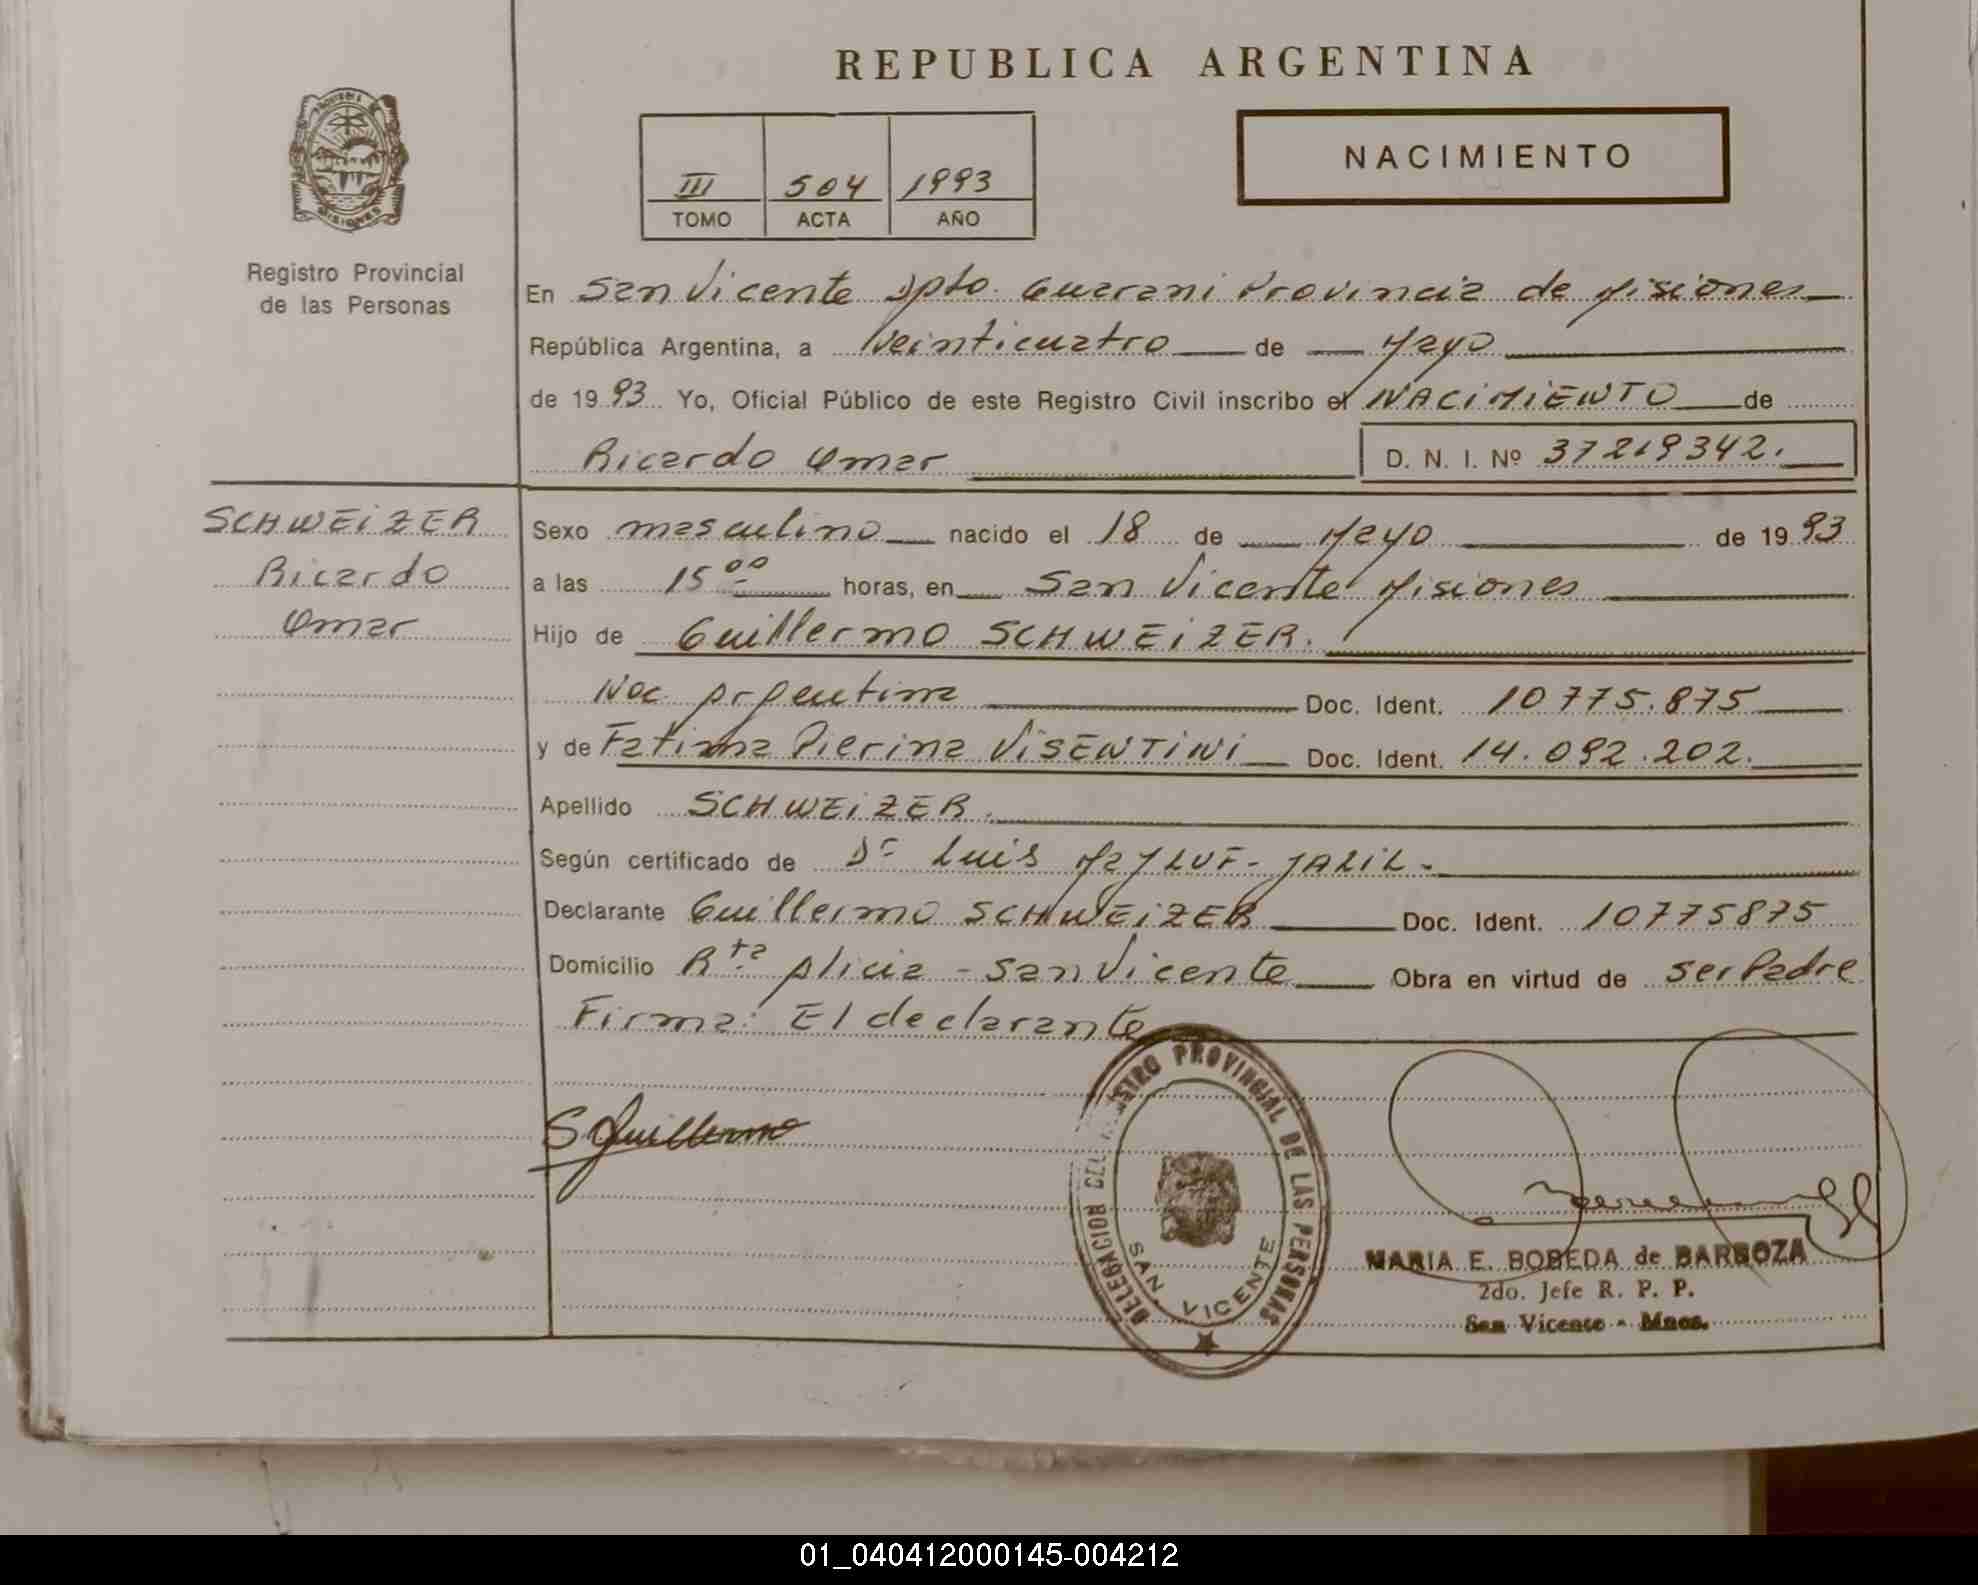 REPUBLICA ARGENTINA
NACIMIENTO
III 504 1993
TOMO ACTA AÑO
Registro Provincial
de las Personas
En San Vicente Dpto. Guarani Provincia de Misiones
República Argentina, a Veinticuatro de Mayo
de 1993 Yo, Oficial Público de este Registro Civil inscribo el NACIMIENTO de
Ricardo Omar D. N. I. Nº 37219342.
SCHWEIZER
Ricardo
Omar
Sexo masculino nacido el 18 de Mayo de 1993
a las 15 00 horas, en San Vicente Misiones
Hijo de Guillermo SCHWEIZER.
Nac. Argentina Doc. Ident. 10775.875
y de Fatima Pierina VISENTINI Doc. Ident. 14.092.202.
Apellido SCHWEIZER.
Según certificado de Dr Luis
Declarante Guillermo SCHWEIZER Doc. Ident. 10775875
Domicilio Rta Alicia - San Vicente Obra en virtud de ser Padre
Firma: El declarante
S Guillermo
DELEGACION DEL REGISTRO PROVINCIAL DE LAS PERSONAS
SAN VICENTE
MARIA E. BOBEDA de BARBOZA
2do. Jefe R. P. P.
San Vicente - Mnes.
01_040412000145-004212